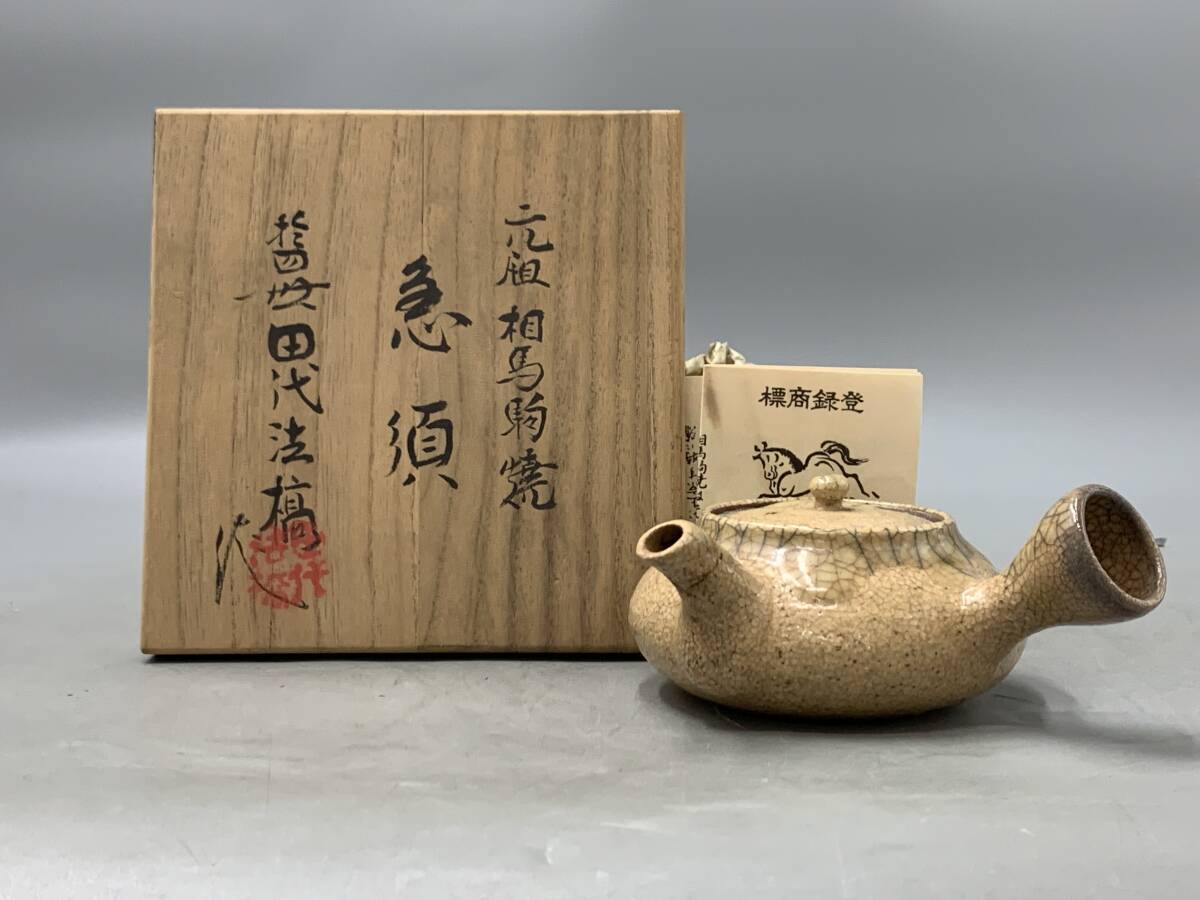 元祖 相馬駒焼
急須
拾四世 田代法橋
標商録登